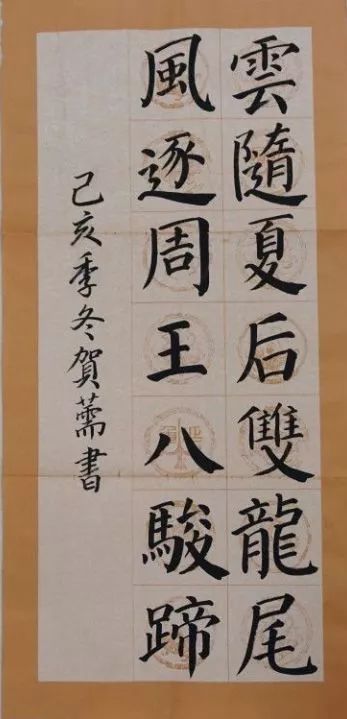 雲隨夏后雙龍尾
風逐周王八駿蹄
己亥季冬賀薷書